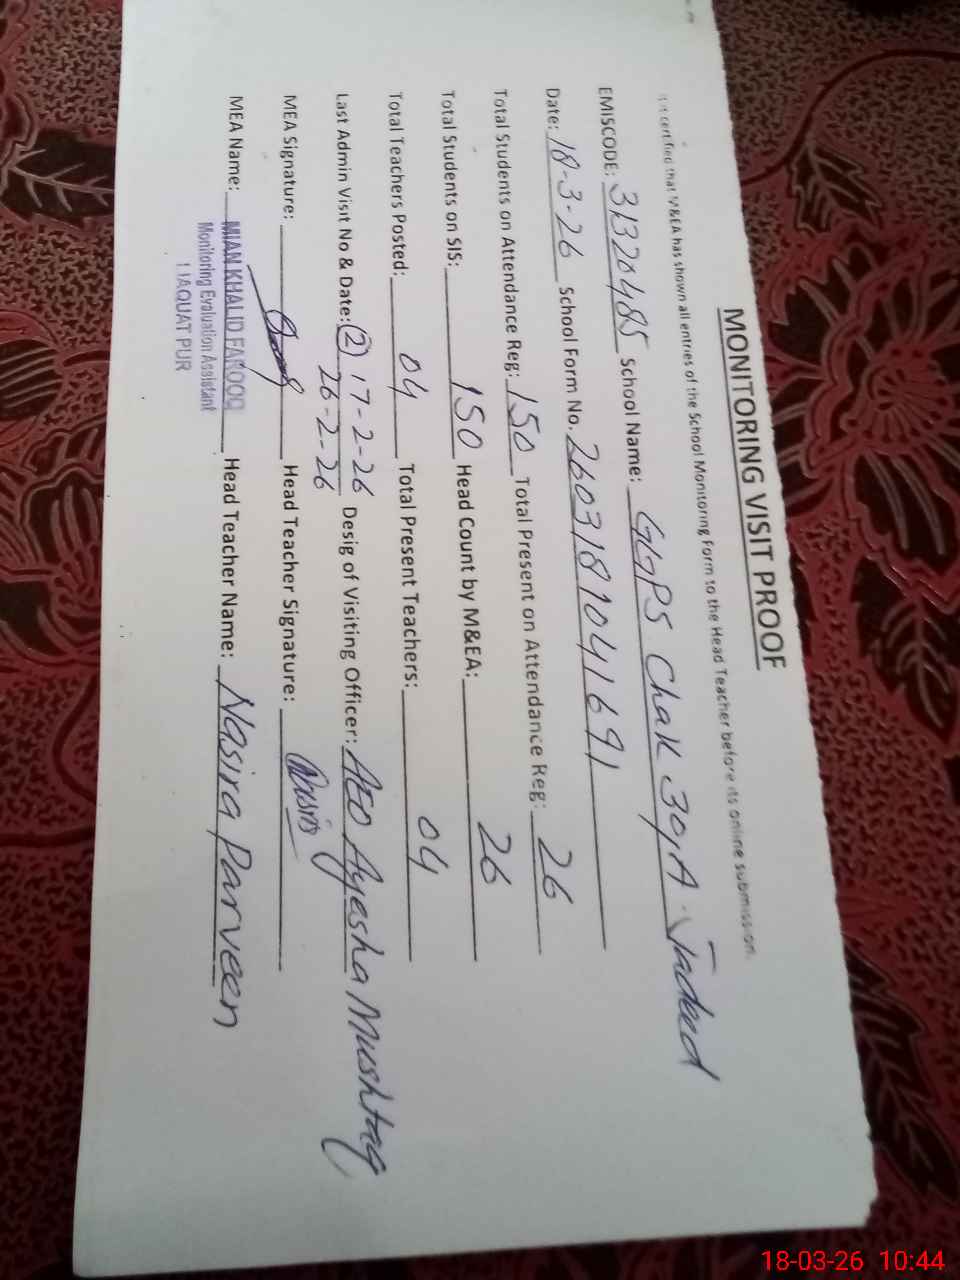 MONITORING VISIT PROOF
It is certified that M&EA has shown all entries of the School Monitoring Form to the Head Teacher before its online submission.
EMISCODE: 31320485 School Name: GGPS Chak 30/A Jadeed
Date: 18-3-26 School Form No. 2603181041691
Total Students on Attendance Reg: 150 Total Present on Attendance Reg: 26
Total Students on SIS: 150 Head Count by M&EA: 26
Total Teachers Posted: 04 Total Present Teachers: 04
Last Admin Visit No & Date: (2) 17-2-26 Desig of Visiting Officer: AEO Ayesha Mushtaq
26-2-26
MEA Signature: Head Teacher Signature: Nasira
MEA Name: MIAN KHALID FAROOQ Head Teacher Name: Nasira Parveen
Monitoring Evaluation Assistant
LIAQUAT PUR
18-03-26 10:44